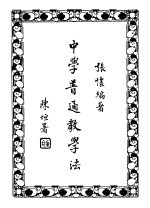 張懷編著
中學普通教學法
陳垣署